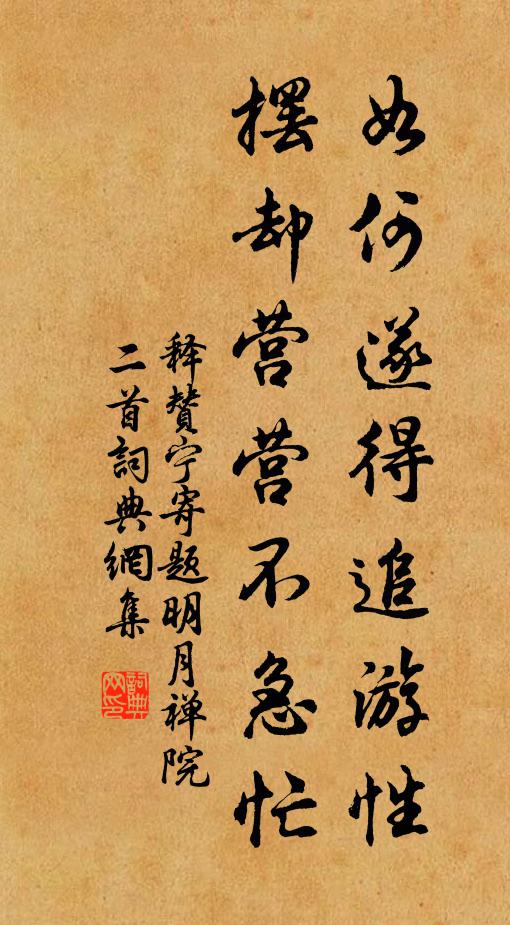 如何遂得追游性
摆却营营不急忙
释赞宁寄题明月禅院
二首詞典網集
詞典网印